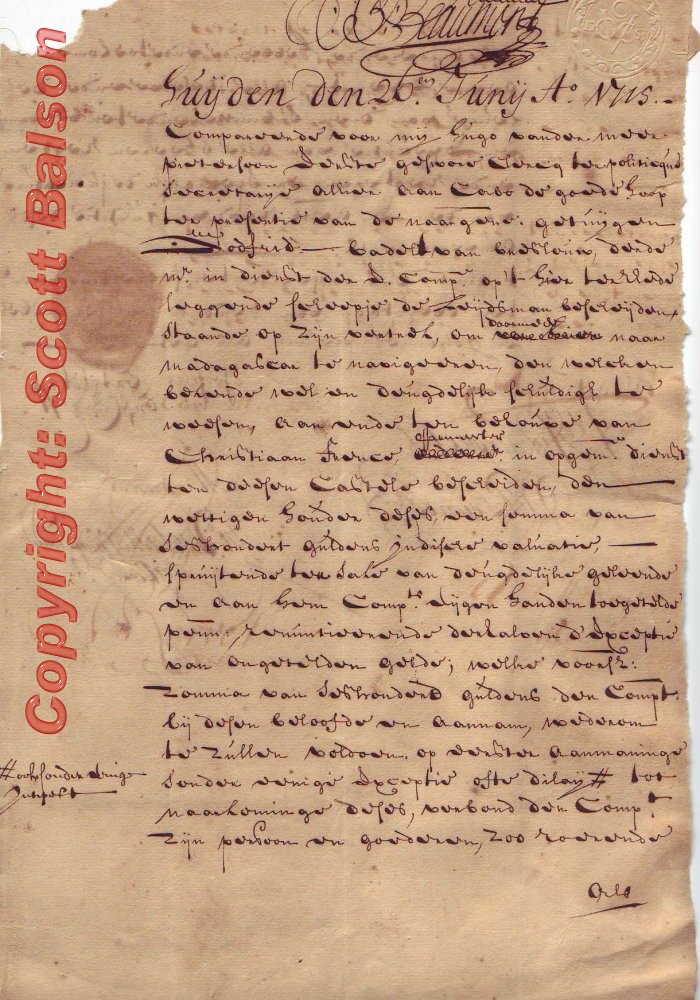 Beaumont
Huijden den 26.en Junij A.o 1715.
Compareerde voor mij Hugo vander meer
pietersoon Eerste geswore Clercq ter politicque
Secretarije alhier aan Cabo de goede hoop
ter presentie van de naargen: getuijgen
Godfrid badelt van breslouw, derde
m.r in dienst der E. Comp.e op 't hier ter rhede
leggende scheepje de Leijdsman bescheijden,
staande op zijn vertrek, om daarmede naar
madagascar te navigeeren, den welcken
bekende wel en deugdelijk schuldigh te
weesen, aan ende ten behouve van
Christiaan in opgem.e dienst
ten deesen Casteele bescheiden, den
wettigen houder deses, een somma van
seshondert guldens jndische valuatie,
spruijtende ter sake van deugdelijke geleende
en aan hem Comp.t eijgen handen toegetelde
penn: renuntieerende derhalven d'exceptie
van ongetelden gelde; welke voorsz:
zomma van seshonderd guldens den Comp.t
bij desen beloofde en aannam, wederom
te zullen voldoen, op eerster aanmaninge
sonder eenige Exceptie ofte dilaij # tot
# ook sonder eenige
Intrest
naarkominge deses, verbond den Comp.t
zijn persoon en goederen, zoo roerende
Als
Copyright: Scott Balson